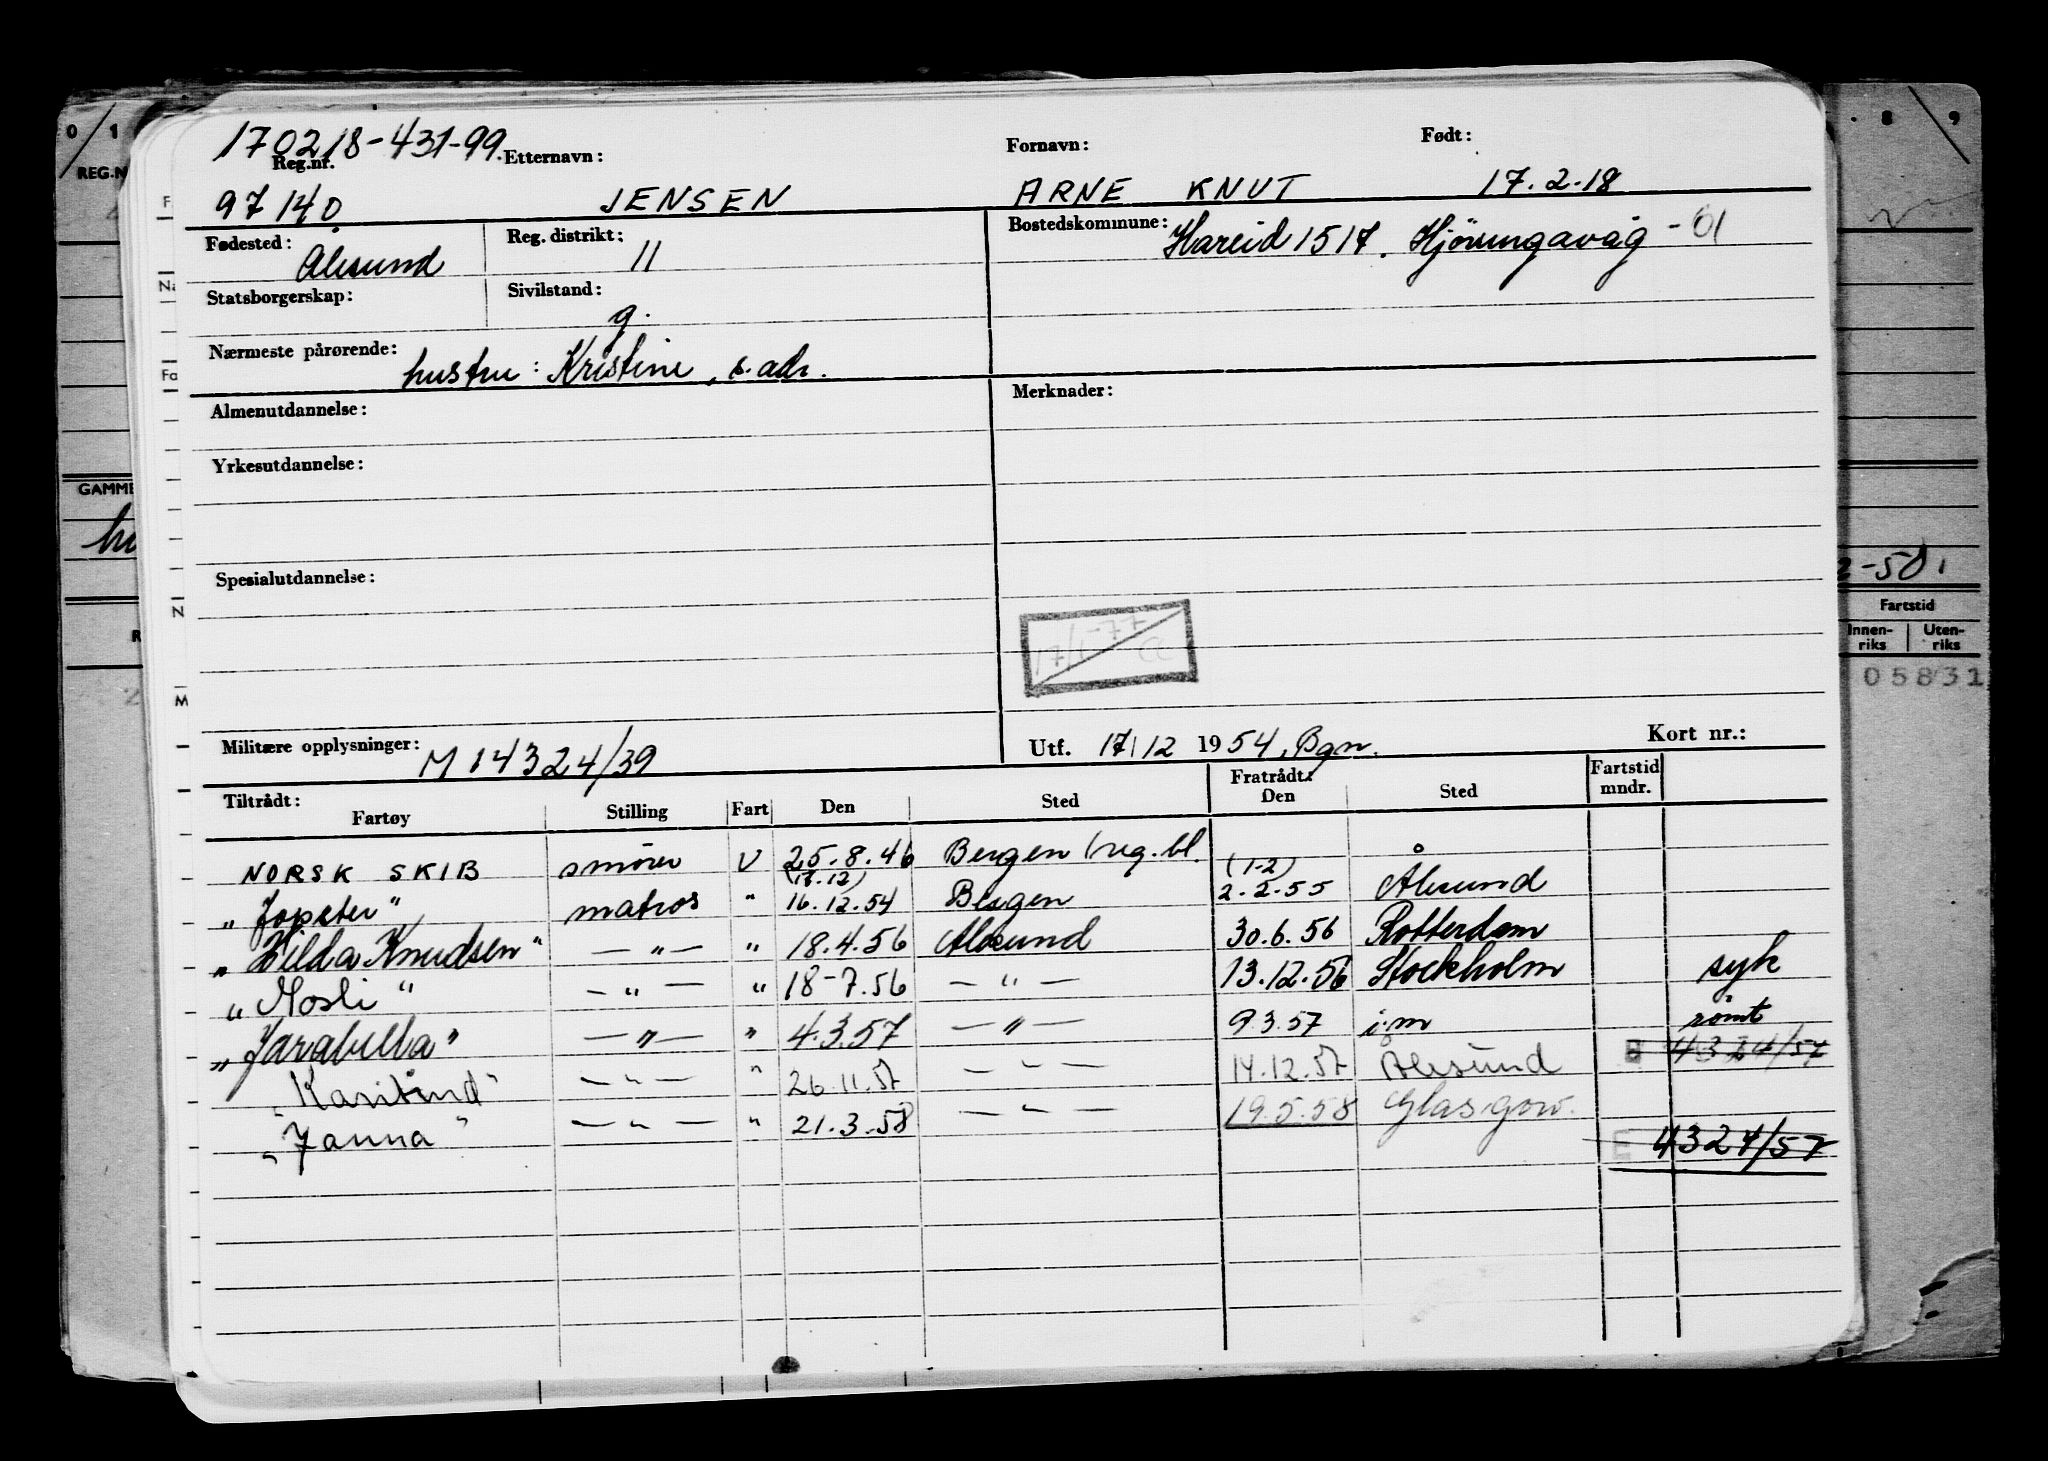 170218-431-99.
Reg.nr. Etternavn: Fornavn: Født:
97140 JENSEN ARNE KNUT 17.2.18
Fødested: Reg. distrikt: Bostedskommune: Hareid 1517. Hjørungavåg -01
Ålesund 11
Statsborgerskap: Sivilstand:
g.
Nærmeste pårørende: hustru: Kristine, s. adr.
Almenutdannelse: Merknader:
Yrkesutdannelse:
Spesialutdannelse:
Militære opplysninger: M 14324/39 Utf. 17/12 1954, Bgn. Kort nr.:
Tiltrådt: Fratrådt: Fartstid
Fartøy Stilling Fart Den Sted Den Sted mndr.
NORSK SKIB smører U 25.8.46 Bergen (reg. bl.
(17.12) (1-2)
"Jopeter" matros " 16.12.54 Bergen 2.2.55 Ålesund
"Hilda Knudsen" — " — " 18.4.56 Ålesund 30.6.56 Rotterdam
"Mosli" — " — " 18-7.56 — " — 13.12.56 Stockholm syk
"Jarabella" — " — " 4.3.57 — " — 9.3.57 i.m rømt
"Karitind" — " — " 26.11.57 — " — 14.12.57 Ålesund 4324/57
"Janna" — " — " 21.3.58 — " — 19.5.58 Glasgow.
4324/57
REG.N
GAMME
2-50.
Fartstid
Innen-riks Uten-riks
05831